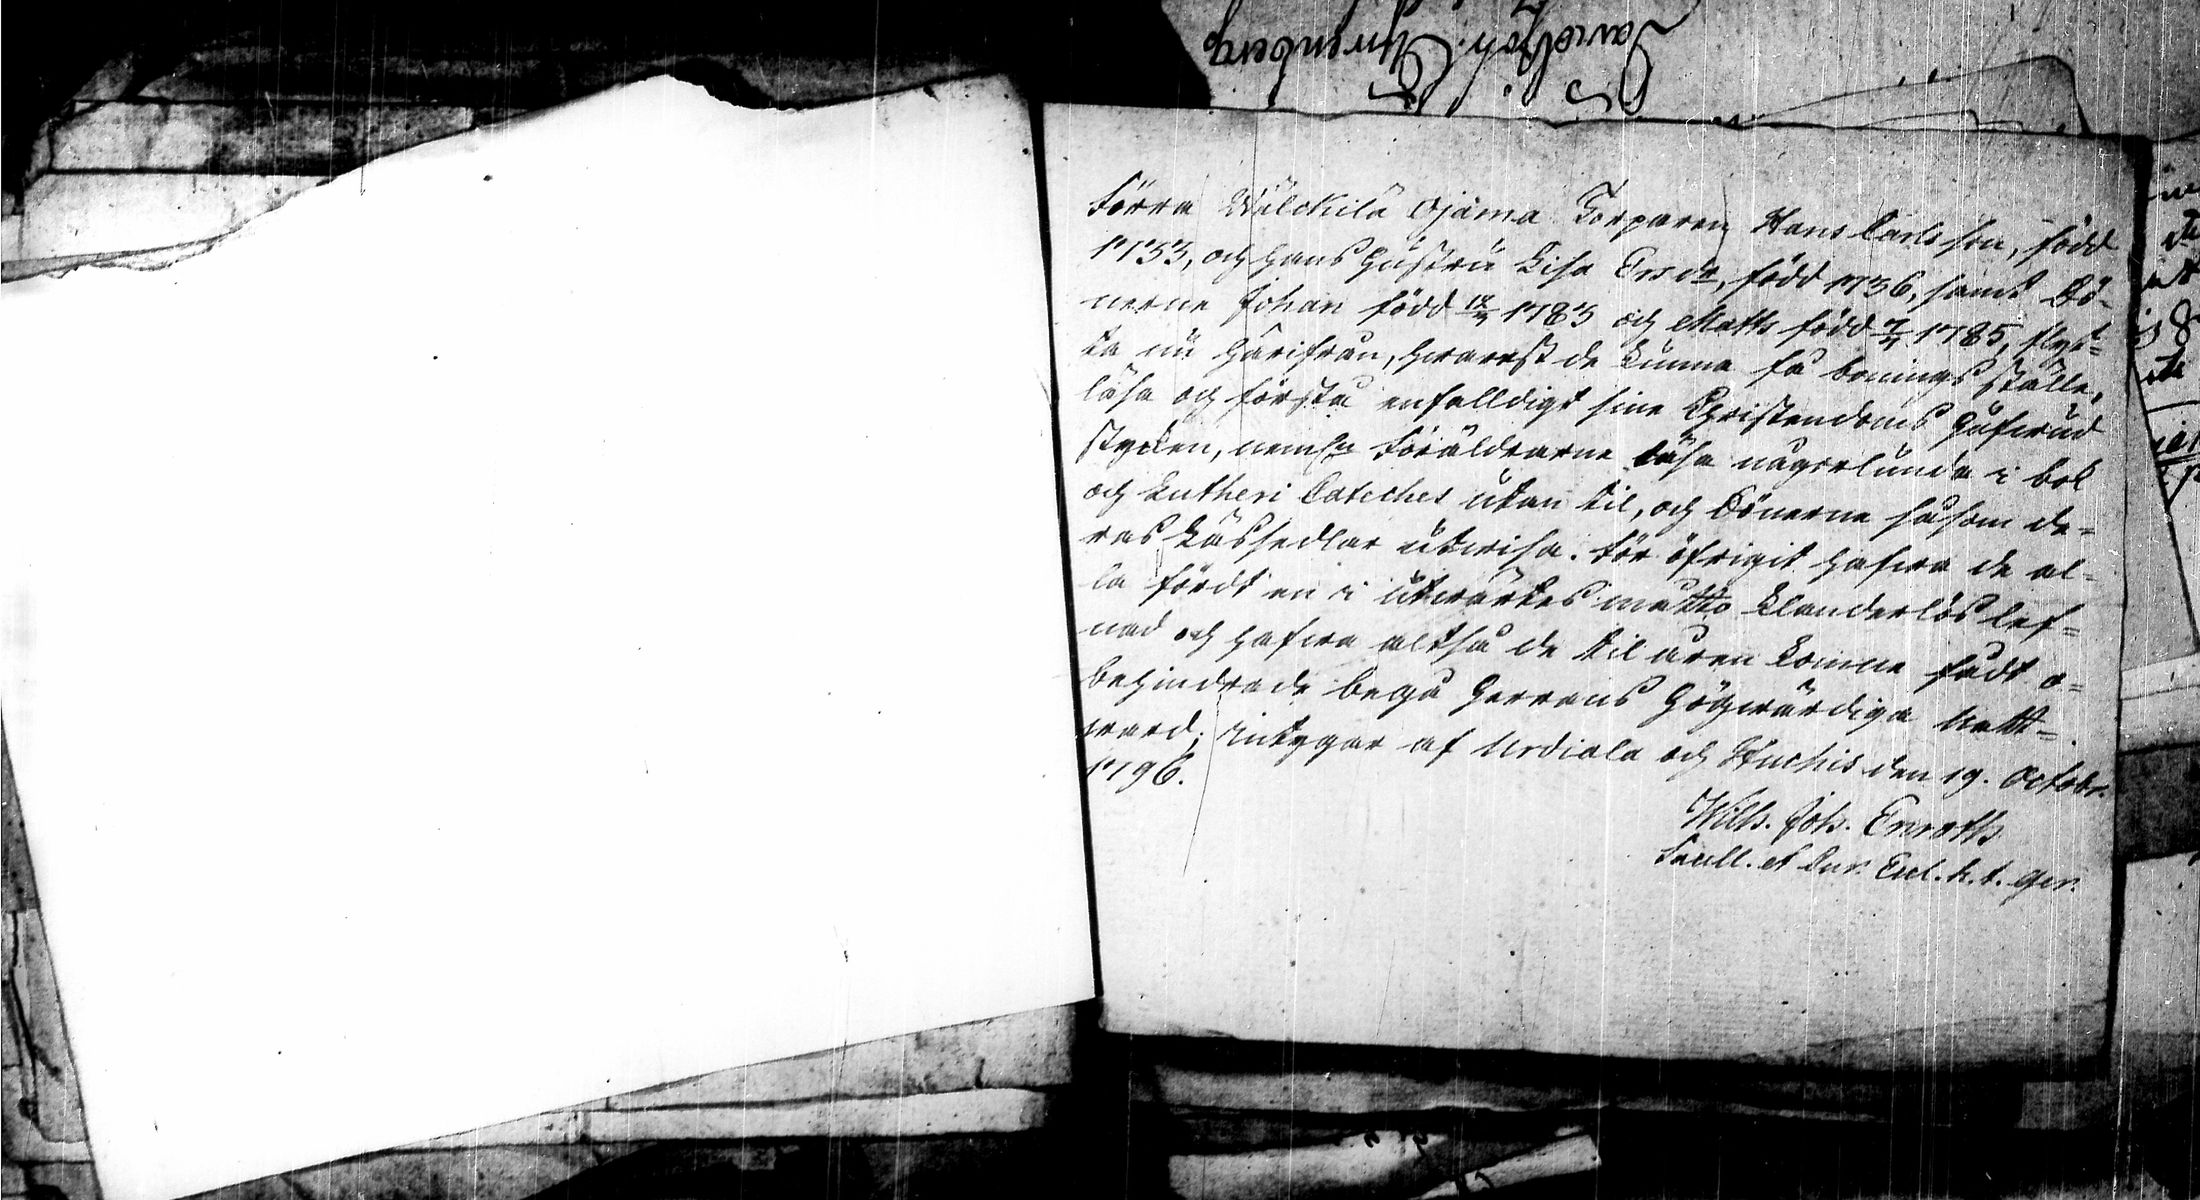 Ahrenberg
Förra Wälckilä Ojama Torparen Hans Carlsson, född
1753, och hans hustru Lisa Ersdr, född 1756, samt Sö-
nerne Johan född 12/4 1783 och Matts född 7/4 1785, flyt-
ta nu härifrån, hwarest de kunna få bonings ställe,
läsa och förstå enfalldigt sine Christendoms hufwud
stycken, neml:n Föräldrarne läsa någorlunda i bok
och Lutheri Cateches utan til, och Sönerne såsom de-
ras Läsesedlar utwisa. För öfrigit hafwa de al-
la fördt en i utwärtes måtto klanderlös lef-
nad och hafwa altså de til åren komne fådt o-
behindrade begå Herrans Högwärdiga Natt-
ward; intygar af Urdiala och Hunhis den 19. Octobr.
1796.
Wilh. Joh. Enroth
Sacell. et Cur. Eccl. h. t. ger.